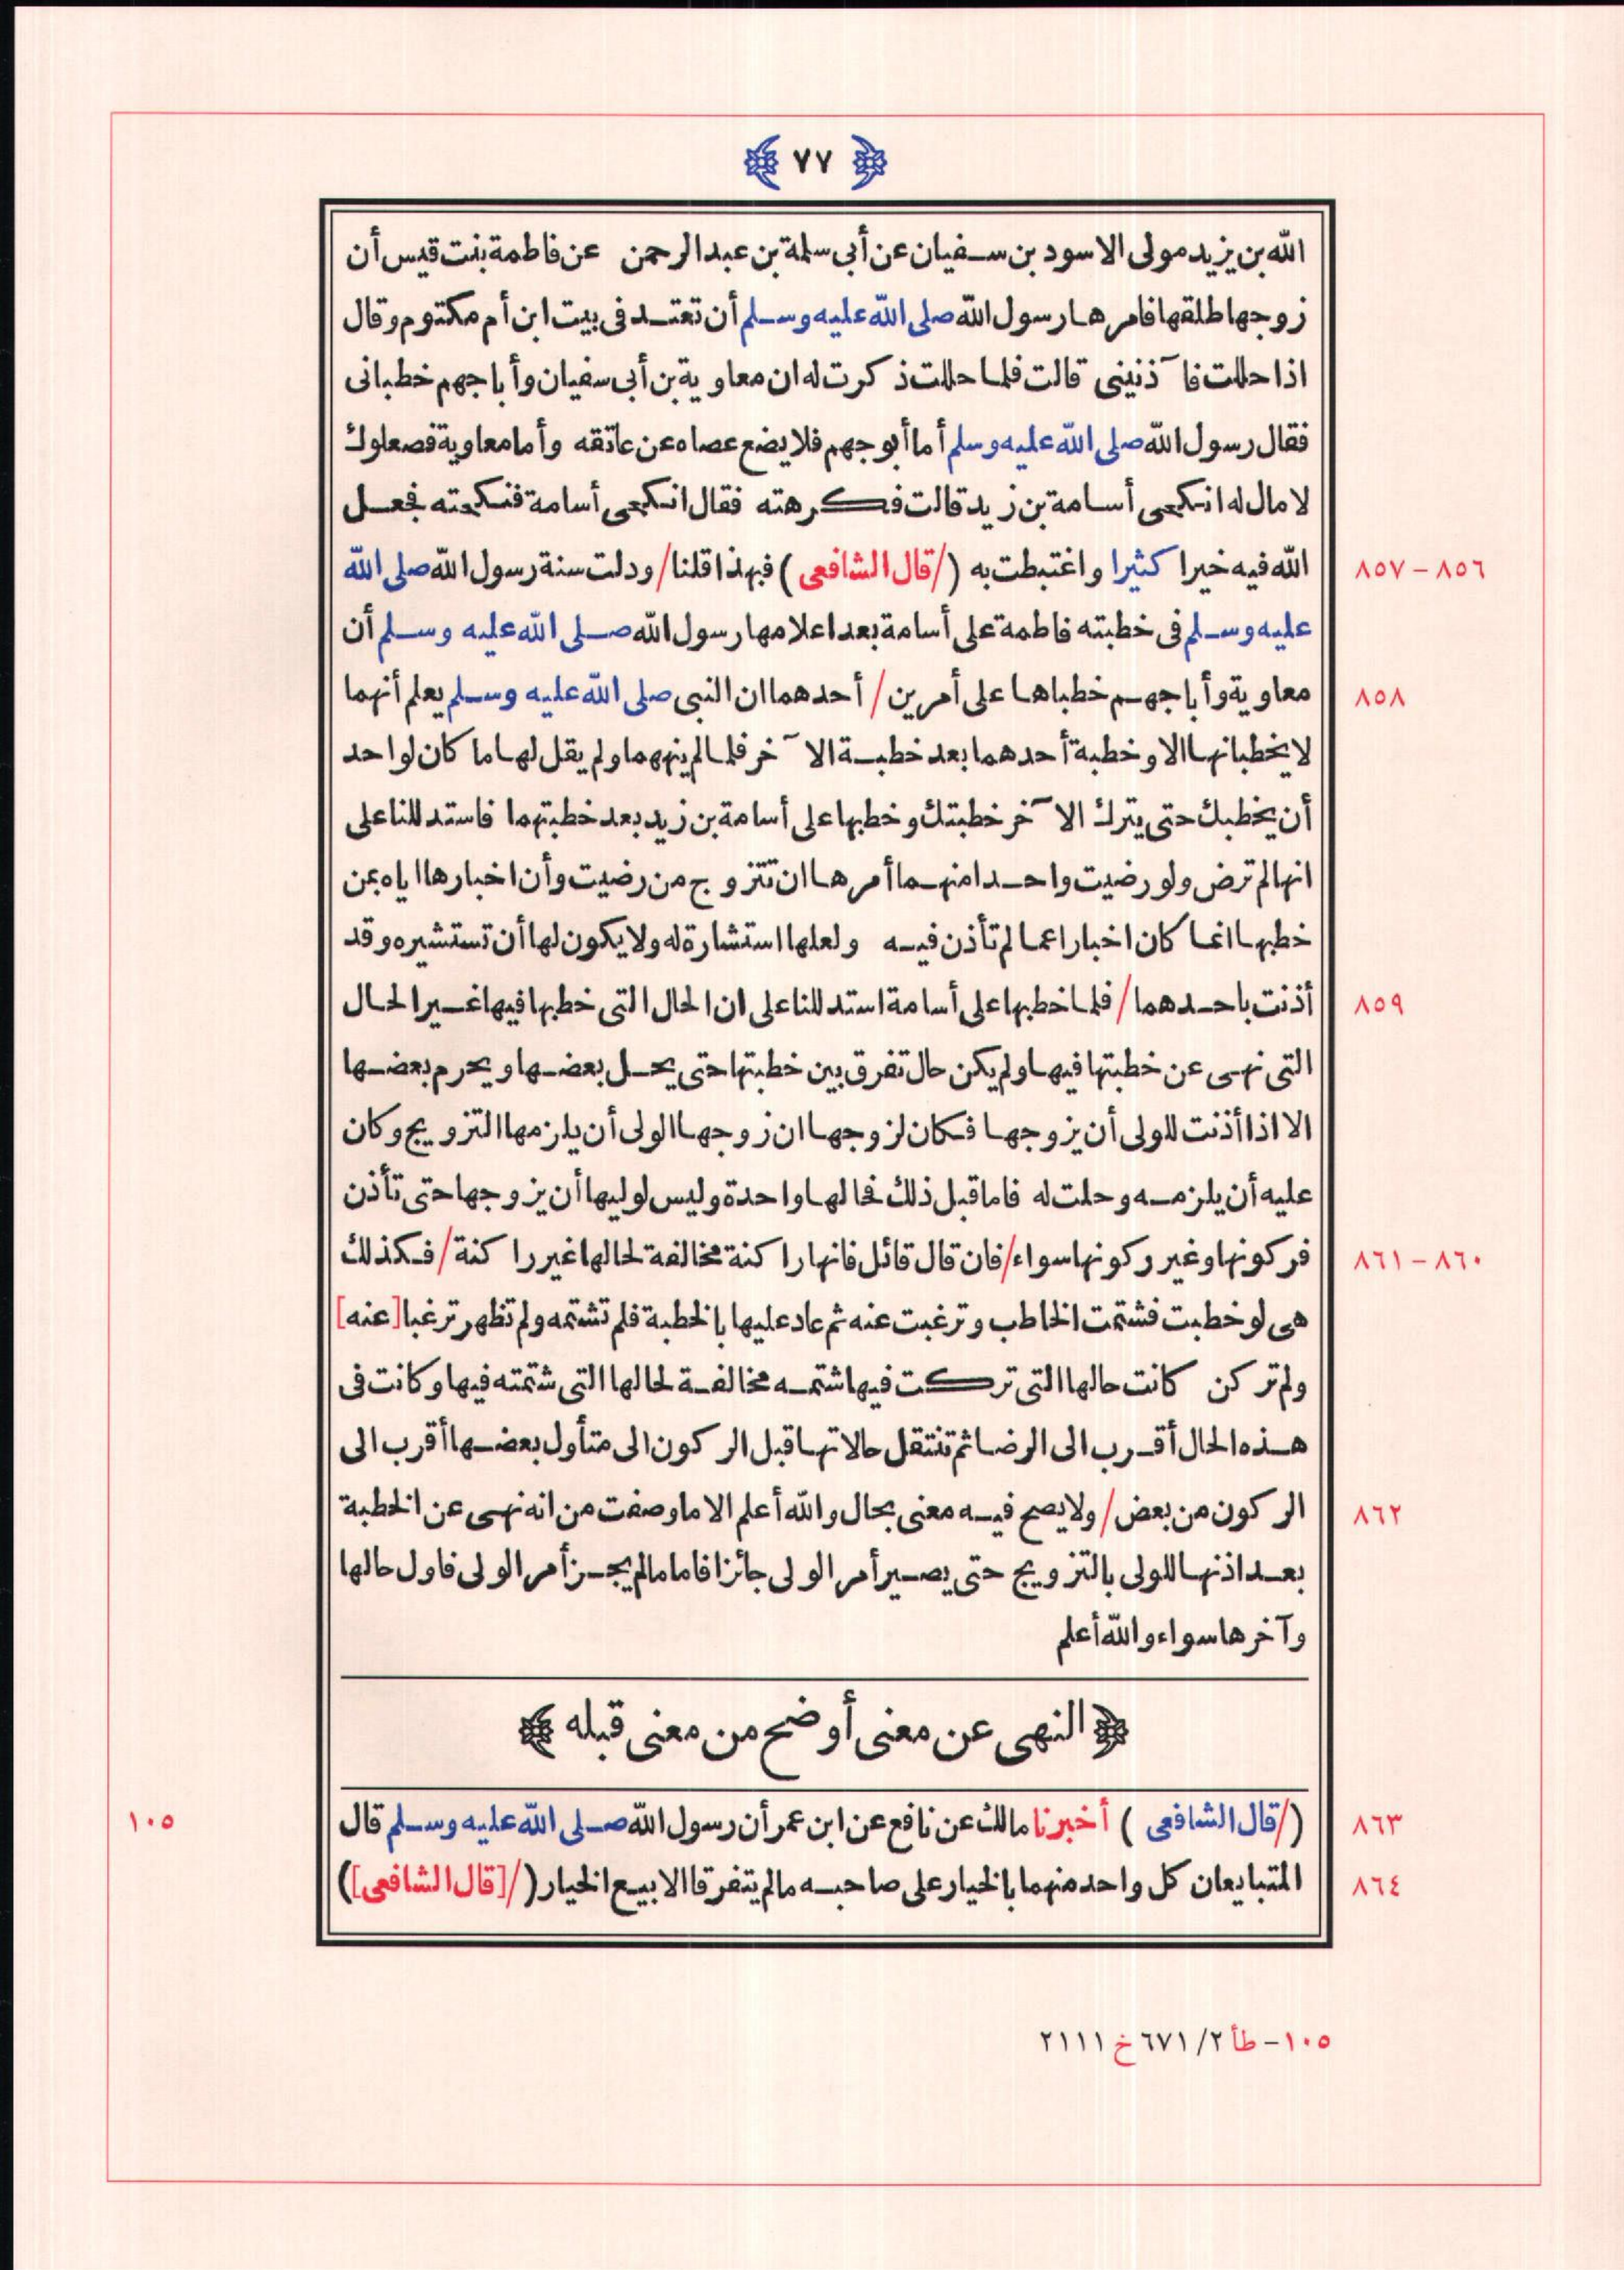 ﴿ ٧٧ ﴾
الله بن يزيد مولى الاسود بن سفيان عن أبي سلمة بن عبد الرحمن عن فاطمة بنت قيس أن
زوجها طلقها فامرها رسول الله صلى الله عليه وسلم أن تعتد في بيت ابن أم مكتوم وقال
اذا حللت فآذنينى قالت فلما حللت ذكرت له ان معاوية بن أبى سفيان وأبا جهم خطبانى
فقال رسول الله صلى الله عليه وسلم أما أبو جهم فلا يضع عصاه عن عاتقه وأما معاوية فصعلوك
لا مال له انكحى أسامة بن زيد قالت فكرهته فقال انكحى أسامة فنكحته فجعل
الله فيه خيرا كثيرا واغتبطت به (/قال الشافعى) فبهذا قلنا/ ودلت سنة رسول الله صلى الله ٨٥٦ – ٨٥٧
عليه وسلم فى خطبته فاطمة على أسامة بعد اعلامها رسول الله صلى الله عليه وسلم أن
معاوية وأبا جهم خطباها على أمرين/ أحدهما ان النبى صلى الله عليه وسلم يعلم أنهما ٨٥٨
لا يخطبانها الا وخطبة أحدهما بعد خطبة الآخر فلما لم ينههما ولم يقل لها ما كان لواحد
أن يخطبك حتى يترك الآخر خطبتك وخطبها على أسامة بن زيد بعد خطبتهما فاستدللنا على
انها لم ترض ولو رضيت واحدا منهما أمرها ان تتزوج من رضيت وأن اخبارها اياه بمن
خطبها انما كان اخبارا عما لم تأذن فيه ولعلها استشارة له ولا يكون لها أن تستشيره وقد
أذنت باحدهما/ فلما خطبها على أسامة استدللنا على ان الحال التى خطبها فيها غير الحال ٨٥٩
التى نهى عن خطبتها فيها ولم يكن حال تفرق بين خطبتها حتى يحل بعضها ويحرم بعضها
الا اذا أذنت للولى أن يزوجها فكان لزوجها ان زوجها الولى أن يلزمها التزويج وكان
عليه أن يلزمه وحلت له فاما قبل ذلك فحالها واحدة وليس لوليها أن يزوجها حتى تأذن
فركونها وغير ركونها سواء/ فان قال قائل فانها راكنة مخالفة لحالها غير راكنة/ فكذلك ٨٦٠ – ٨٦١
هى لو خطبت فشتمت الخاطب وترغبت عنه ثم عاد عليها بالخطبة فلم تشتمه ولم تظهر ترغبا [عنه]
ولم تركن كانت حالها التى تركت فيها شتمه مخالفة لحالها التى شتمته فيها وكانت فى
هذه الحال أقرب الى الرضا ثم تنتقل حالاتها قبل الركون الى متأول بعضها أقرب الى
الركون من بعض/ ولا يصح فيه معنى بحال والله أعلم الا ما وصفت من انه نهى عن الخطبة ٨٦٢
بعد اذنها للولى بالتزويج حتى يصير أمر الولى جائزا فاما ما لم يجز أمر الولى فاول حالها
وآخرها سواء والله أعلم
﴿ النهى عن معنى أوضح من معنى قبله ﴾
(/قال الشافعى) أخبرنا مالك عن نافع عن ابن عمر أن رسول الله صلى الله عليه وسلم قال ٨٦٣ ١٠٥
المتبايعان كل واحد منهما بالخيار على صاحبه ما لم يتفرقا الا بيع الخيار (/[قال الشافعى]) ٨٦٤
١٠٥ – طأ ٢/ ٦٧١ خ ٢١١١